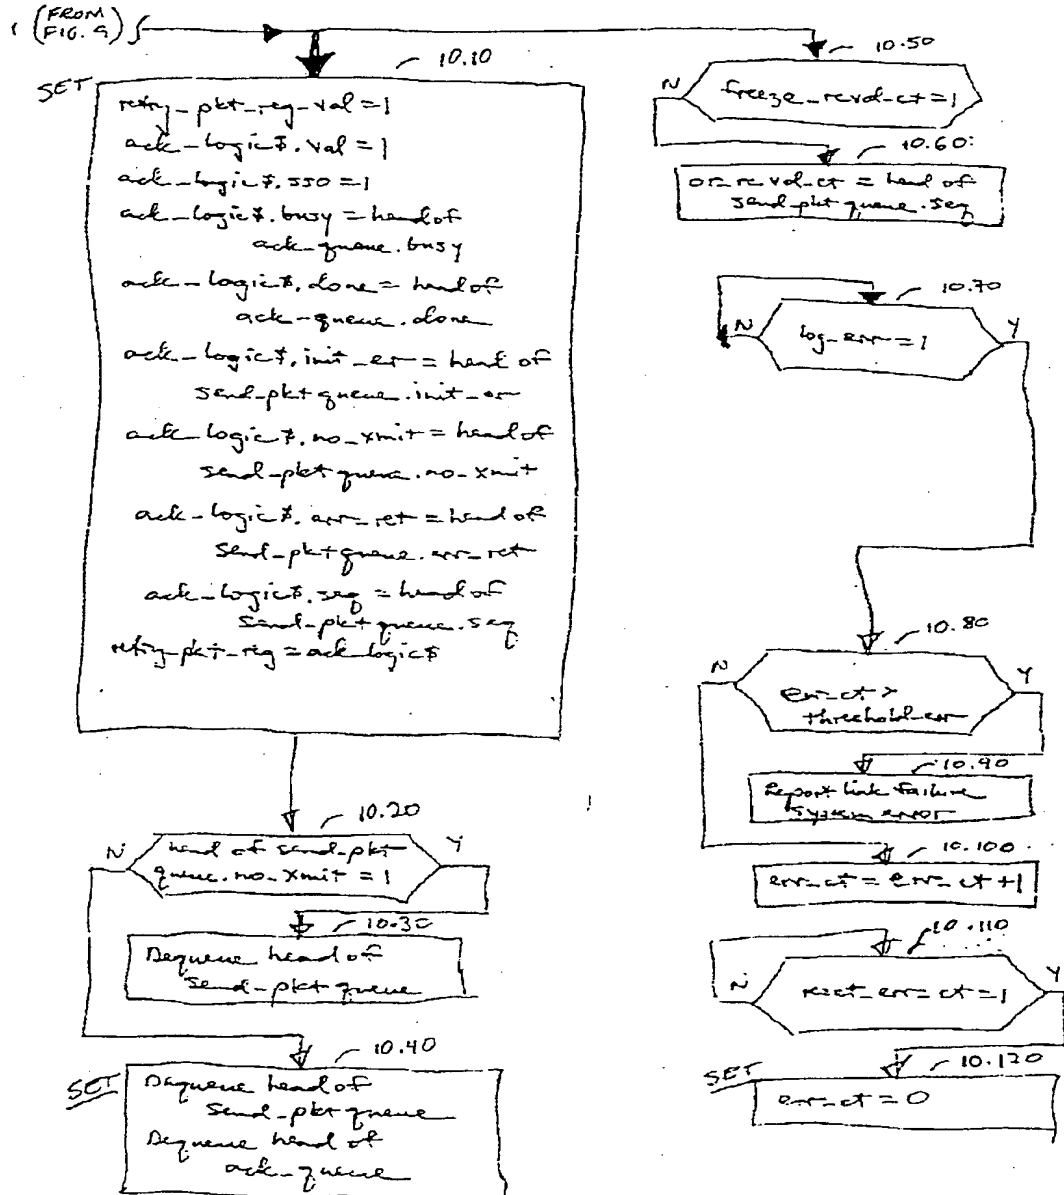 1 (FROM
FIG. 9)
10.10
SET
retry_pkt_reg_val = 1
ack_logic$.val = 1
ack_logic$.sso = 1
ack_logic$.busy = head of
ack_queue.busy
ack_logic$.done = head of
ack_queue.done
ack_logic$.init_er = head of
send_pkt queue.init_er
ack_logic$.no_xmit = head of
send_pkt queue.no_xmit
ack_logic$.err_ret = head of
send_pkt queue.err_ret
ack_logic$.seq = head of
send_pkt queue.seq
retry_pkt_reg = ack_logic$
10.20
N
head of send_pkt
queue.no_xmit = 1
Y
10.30
Dequeue head of
send_pkt queue
10.40
SET
Dequeue head of
send_pkt queue
Dequeue head of
ack_queue
10.50
N
freeze_rcvd_ct = 1
10.60
rcvd_ct = head of
send_pkt queue.seq
10.70
N
log_err = 1
Y
10.80
N
err_ct >
threshold_err
Y
10.90
Report link failure
system error
10.100
err_ct = err_ct + 1
10.110
N
reset_err_ct = 1
Y
10.120
SET
err_ct = 0